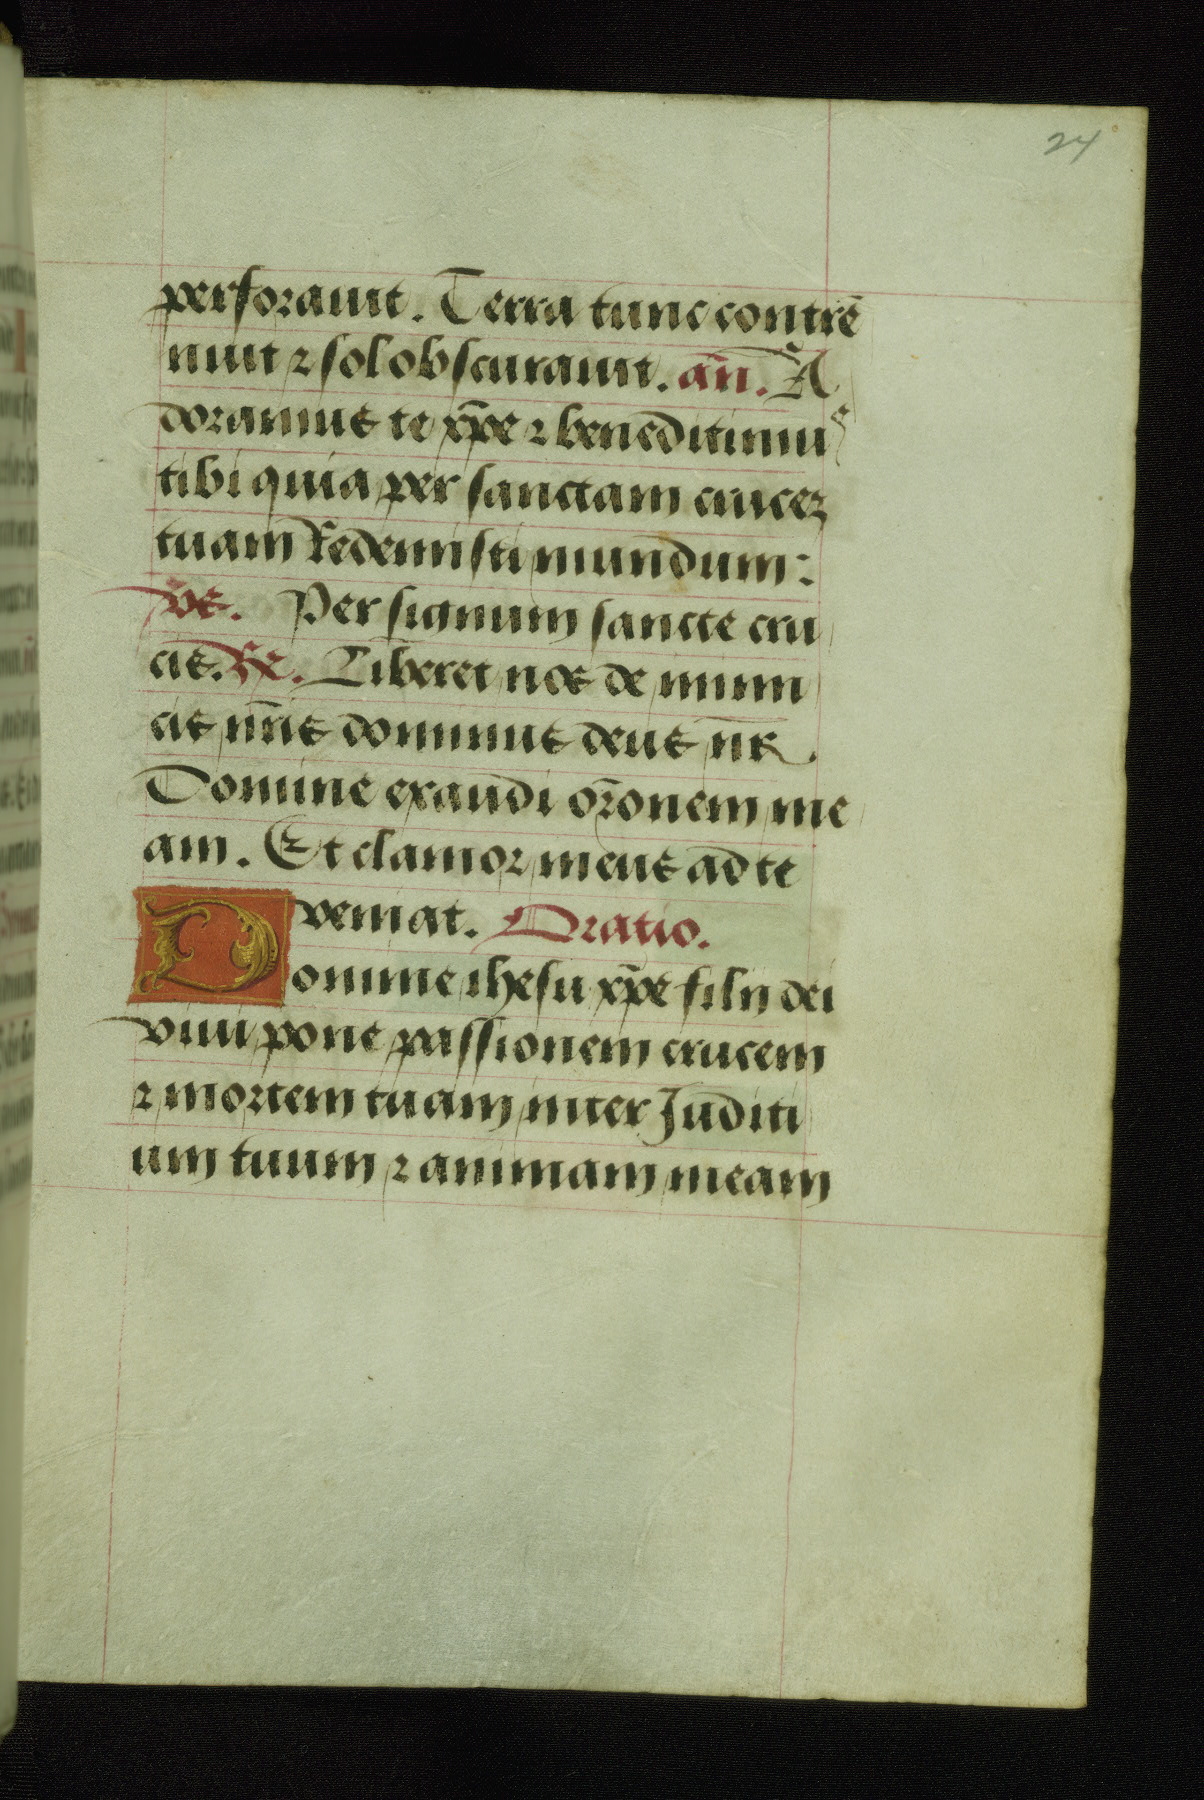 24
perforauit. Terra tunc contrē
nuit ⁊ sol obscurauit. añ. A
doramus te xp̄e ⁊ benedicimus
tibi quia per sanctam crucez
tuam Redemisti mundum:
vs. Per signum sancte cru
cis. Rx. Liberet nos de inimi
cis nr̄is dominus deus nr̄.
Domine exaudi or̄onem me
am. Et clamor meus ad te
veniat. Oratio.
Domine ihesu xp̄e filij dei
viui pone passionem crucem
⁊ mortem tuam inter Juditi
um tuum ⁊ animam meam